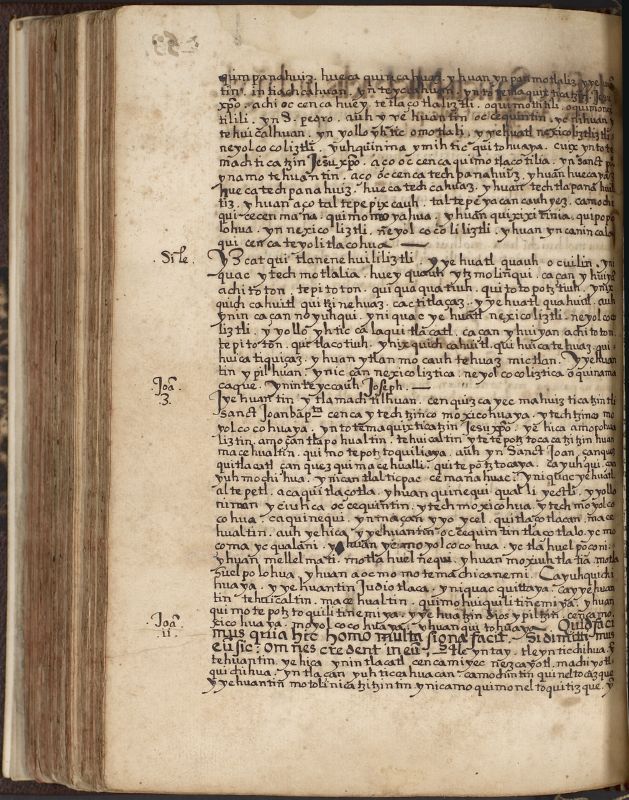 quimpanahuiz. hueca quincahuaz. yhuan yn pan motlaliz. yyehuan
tin. in tiachcahuan. yn teyccahuan. yn toTemaquixticatzin Jesu
xpõ. achi occenca huey. tetlaçotlaliztli. oquimottitili. oquimone
tilili. yn S. pedro. auh y ye huantin oc cequintin. yc nihuan y
tehuicalhuan. yn yollo yhtic omotlali. y yehuatl nexicoliztliztli
neyolcocoliztli. yuhquinma ymihtic quitohuaya. cuix yn tote
machticatzin Jesu xpõ. aço occenca quimotlaçotilia. yn Sanct pº.
ynamo tehuantin. aço occenca techpanahuiz. yhuan hueca yaz
hueca techpanahuiz. hueca techcahuaz. yhuan techtlapanahuil
tiz. yhuan aço taltepepixcauh. taltepeyacancauh yez. camochi
quicecenmana. quimomoyahua. yhuan quixixitinia. quipopo
lohua. yn nexicoliztli. neyolcocoliztli. yhuan yn canin cala
qui cenca teyolitlacohua —
Sile. Yzcatqui tlanenehuililiztli. yyehuatl quauhocuilin. yni
quac ytech motlalia. huey quauh ytzmolinqui. çaçan yhuiyan
achitoton. tepitoton. quiquaquatiuh. quixotopotztiuh. ynix
quich cahuitl quitzinehuaz. cactitlaçaz. yyehuatl quahuitl. auh
ynin caçan no yuhqui. yniquac yehuatl nexicoliztli. neyolcoco
liztli. yyollo yhtic calaqui tlacatl. çaçan yhuiyan. achitoton
tepitoton. quitlacotiuh. ynixquich cahuitl. quihuicatehuaz. qui
huicatiquiçaz. yhuan ytlan mocauhtehuaz mictlan. Yyehuan
tin ypilhuan. ynic çan nexicoliztica. neyolcocoliztica oquinama
caque. ynin teyccauh Joseph. —
Joã. 3. Iyehuantin ytlamachtilhuan. cenquizca yecmahuiztiçatzintli
Sanct Joan bapta. cenca ytechtzinco moxicohuaya. ytechtzinco mo
yolcocohuaya. yn toTemaquixticatzin Jesu xpõ. yehica amopohua
liztin. amo çan tlapohualtin. tehuicaltin ytetepotztocacatzitzinhuan
macehualtin. quimotepotztoquiliaya. auh yn Sanct Joan, çanquez
quitlacatl çanquezqui macehualli. quitepotztocaya. ca yuhqui. çan
yuh mochihua. ynican tlalticpac cemanahuac. yniquac yehuatl
altepetl. acaqui tlaçotla. yhuan quinequi qualli yectli. yyollo
niman yciuhca oc cequintin. ytech moxicohua. ytech moyolco
cohua. ca quinequi. yn maçan yyo ycel. quitlaçotlacan. mace
hualtin. auh yehica. yyehuantin oc cequintin tlaçotlalo. yc mo
coma yc qualani. yhuan yc moyolcocohua. yc tlahuelpoçoni.
yhuan mellelmati. motlahuelnequi. yhuan moxiuhtlatia. motla
huelpolohua. yhuan aocmo motemachicanemi. Ca yuh quichi
huaya. yyehuantin Judiotlaca. yniquac quittaya. ca yyehuan
tin tehuicaltin. macehualtin. quimohuiquilitinemiya. yhuan
quimotepotztoquilitinemiya. yyehuatzin Dios ypiltzin. cenca mo
xicohuaya. moyolcocohuaya. yhuan quitohuaya. Quid faci
Joã. 11. mus quia hic homo multa signa facit. Si dimitti-mus
eū sic: omnes credent in eū. q. Tle yntay. tle yn ticchihua. y
tehuantin. yehica ynin tlacatl cenca miyec nezcayotl. machiyotl
quichihua. yn tlacan yuh ticcahuacan. ca mochintin quineltocazque
yyehuantin motolinicatzitzintin ynic amo quimoneltoquitizque. y